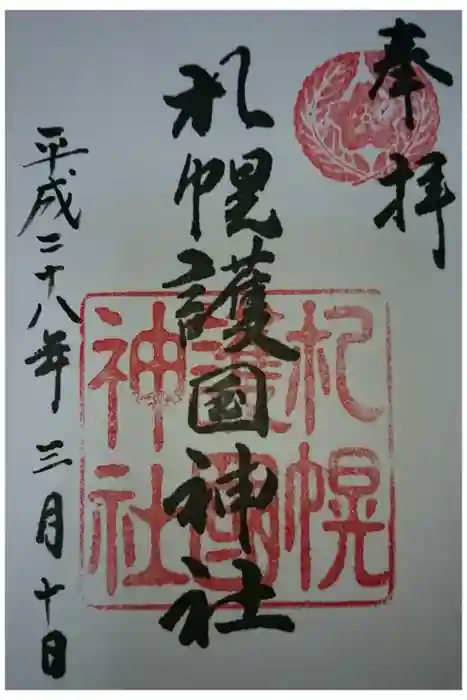 奉拝
札幌護国神社
札幌
護國
神社
平成二十八年三月十日